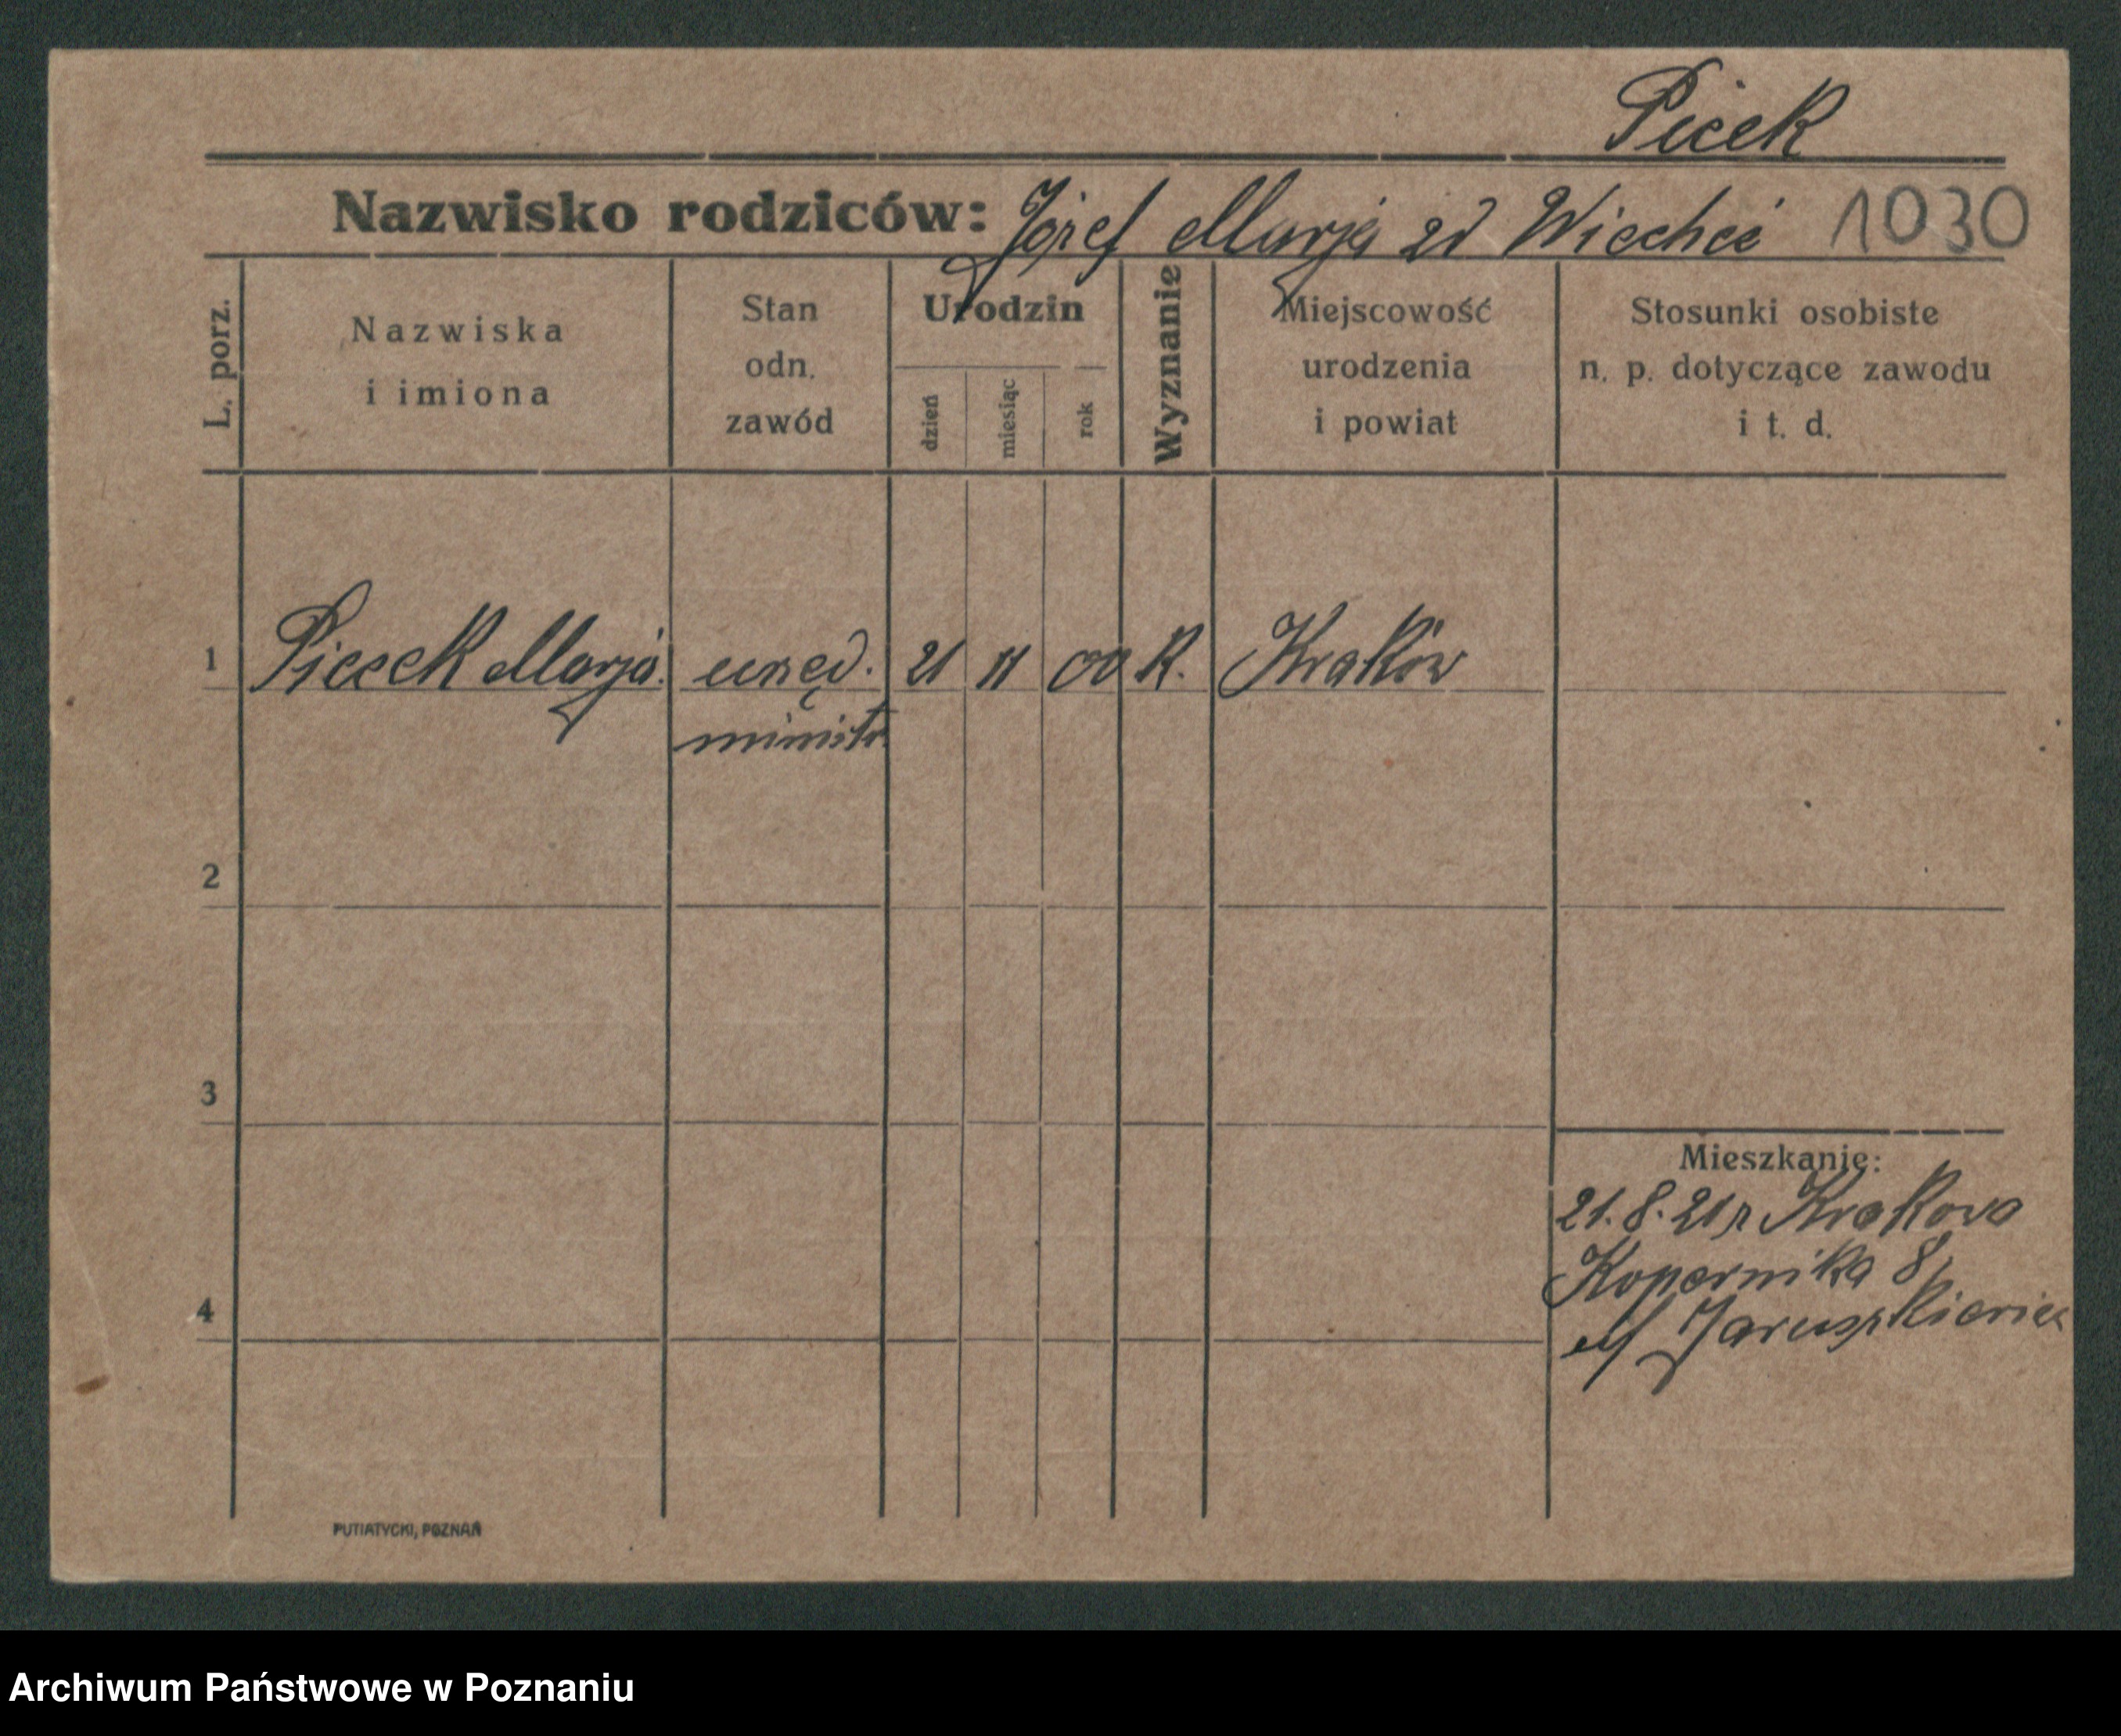 Picek
Nazwisko rodziców: Józef Marja zd 1030
L. porz.
Nazwiska i imiona
Stan odn. zawód
Urodzin
dzień miesiąc rok
Wyznanie
Miejscowość urodzenia i powiat
Stosunki osobiste n. p. dotyczące zawodu i t. d.
1 Marja urzęd. 21 11 00 K. Kraków
ministr.
2
3
Mieszkanie:
21.8.21 z Krakowa
Kopernika 8
4
PUTIATYCKI, POZNAŃ
Archiwum Państwowe w Poznaniu